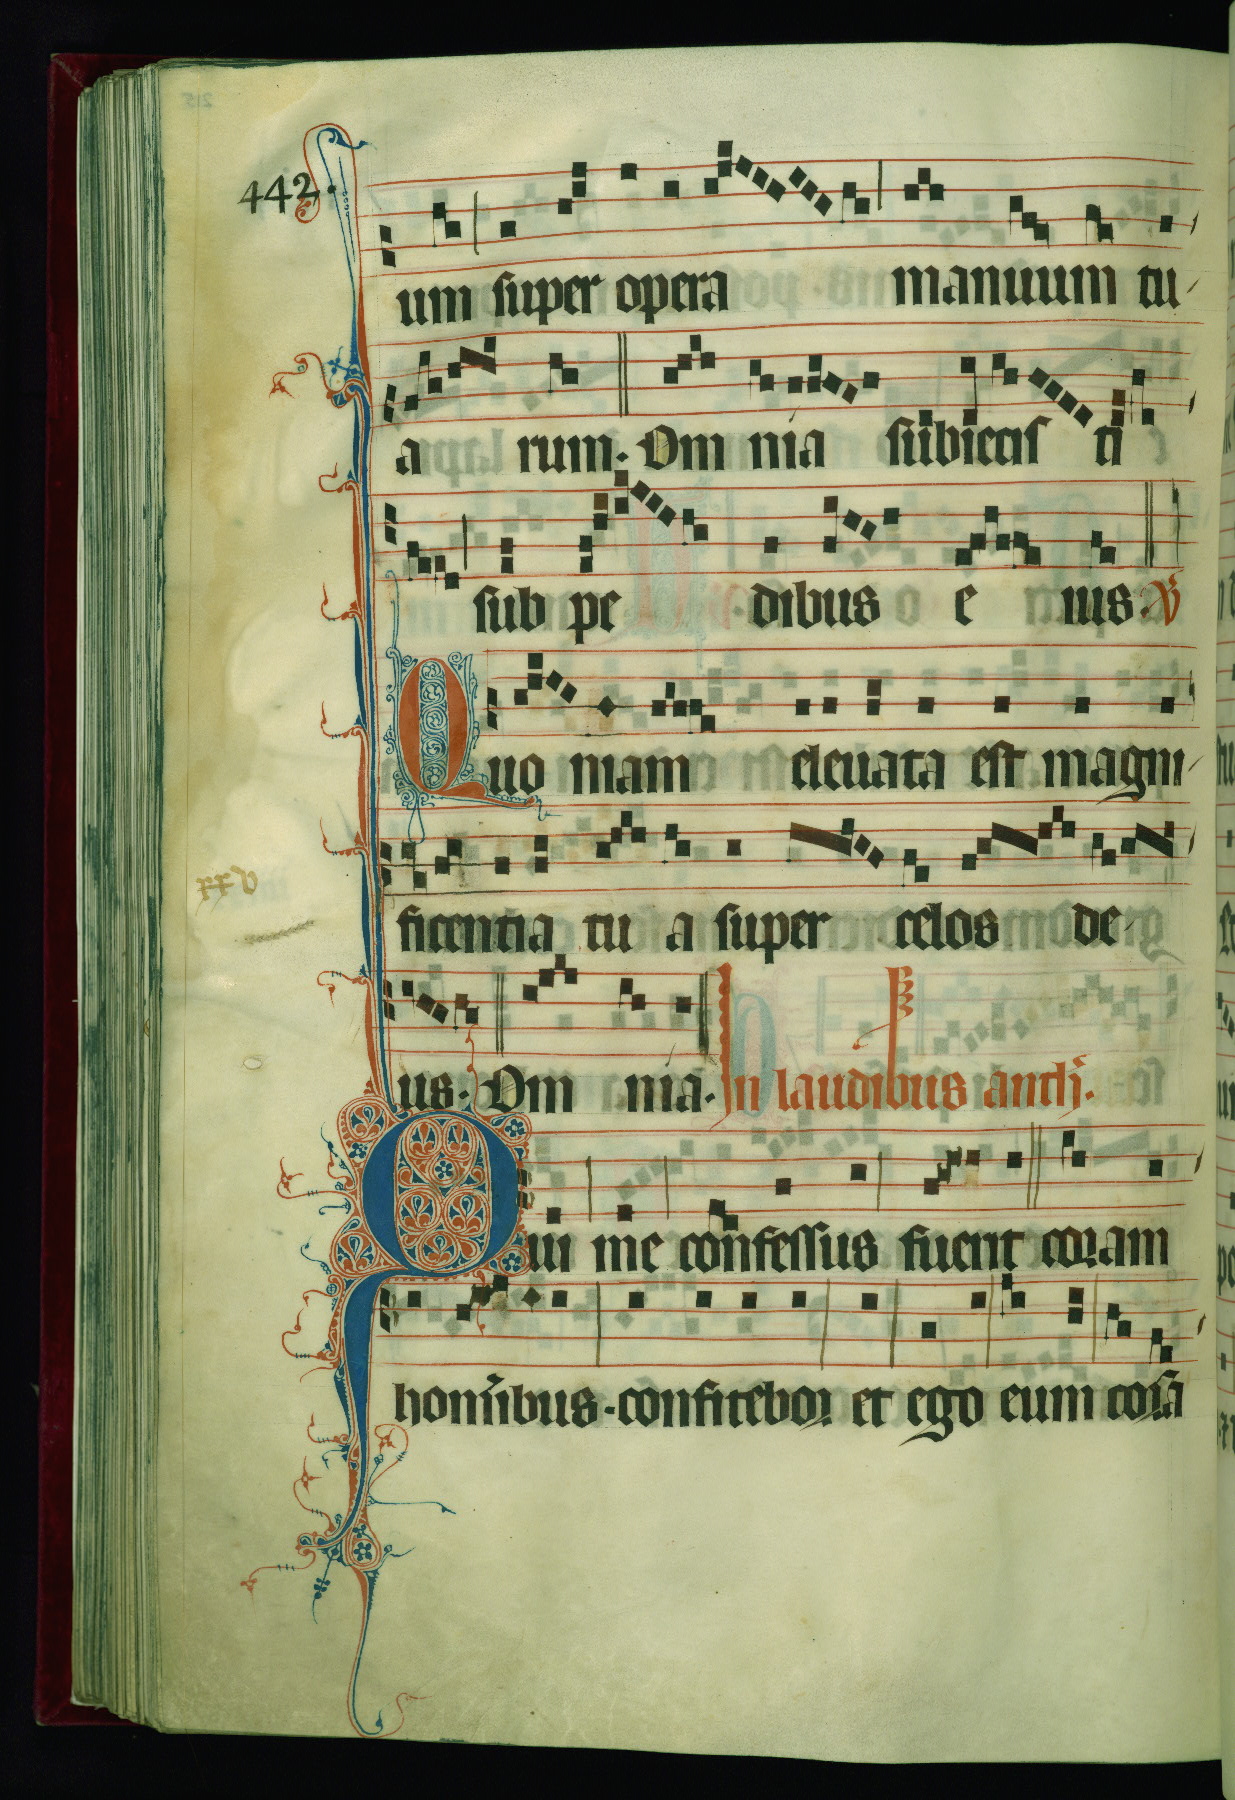 442.
um super opera manuum tu
a rum. Om nia subiecis ti
sub pe dibus e ius. V
Quo niam eleuata est magni
ficentia tu a super celos de
us. Om nia. In laudibus anth.
Qui me confessus fuerit coram
hominibus. confitebor et ego eum cora